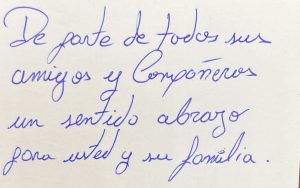 De parte de todos sus
amigos y Compañeros
un sentido abrazo
para usted y su familia.